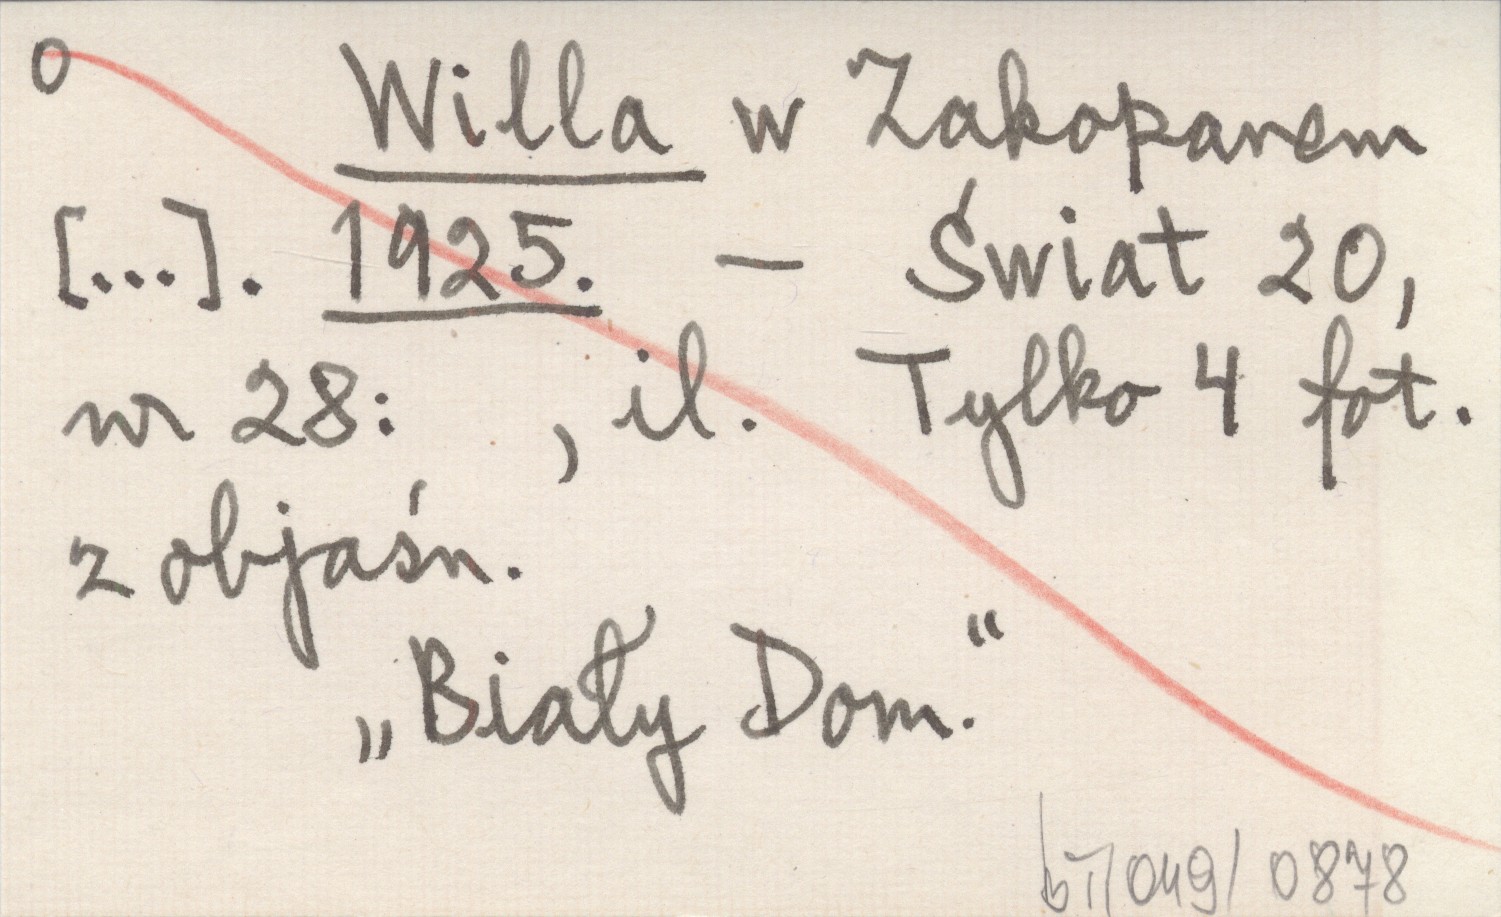 0 Willa w Zakopanem
[...]. 1925. — Świat 20,
nr 28: , il. Tylko 4 fot.
z objaśn.
„Biały Dom.“
049/0878